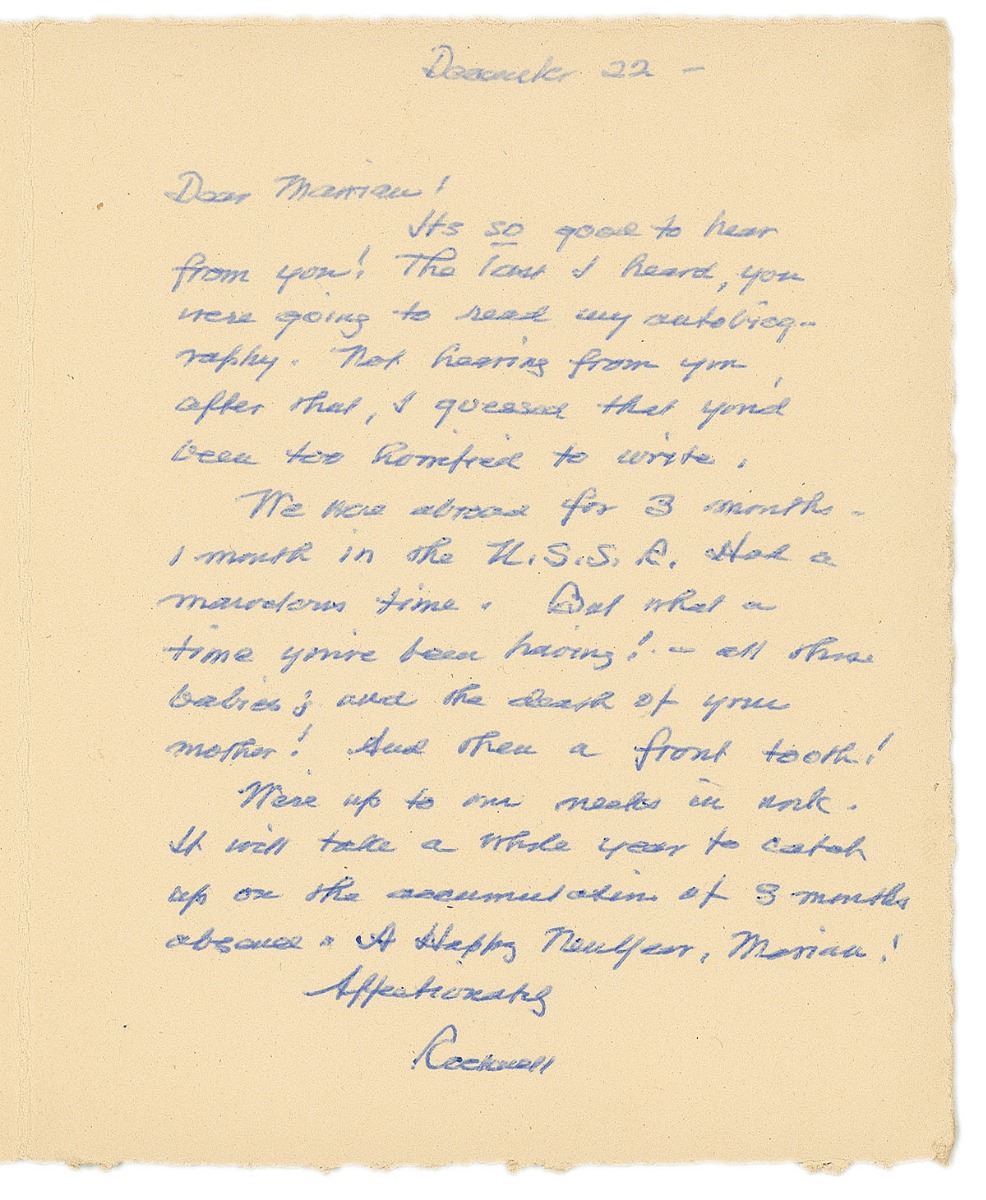 December 22 –
Dear Marrian!
Its so good to hear
from you! The last I heard, you
were going to read my autobiog-
raphy. Not hearing from you
after that, I guessed that you'd
been too horrified to write.
We were abroad for 3 months –
1 month in the U.S.S.R. Had a
marvelous time. But what a
time you've been having! – all those
babies; and the death of your
mother! And then a front tooth!
We're up to our necks in work.
It will take a whole year to catch
up on the accumulation of 3 months
absence. A Happy New Year, Marian!
Affectionately
Rockwell